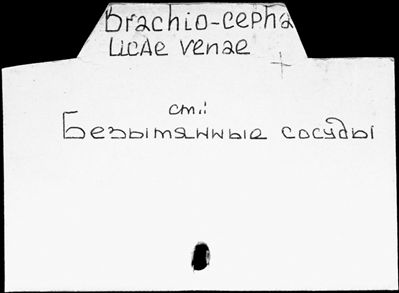 brachio-cepha
licae venae
ст.:
Безымянные сосуды